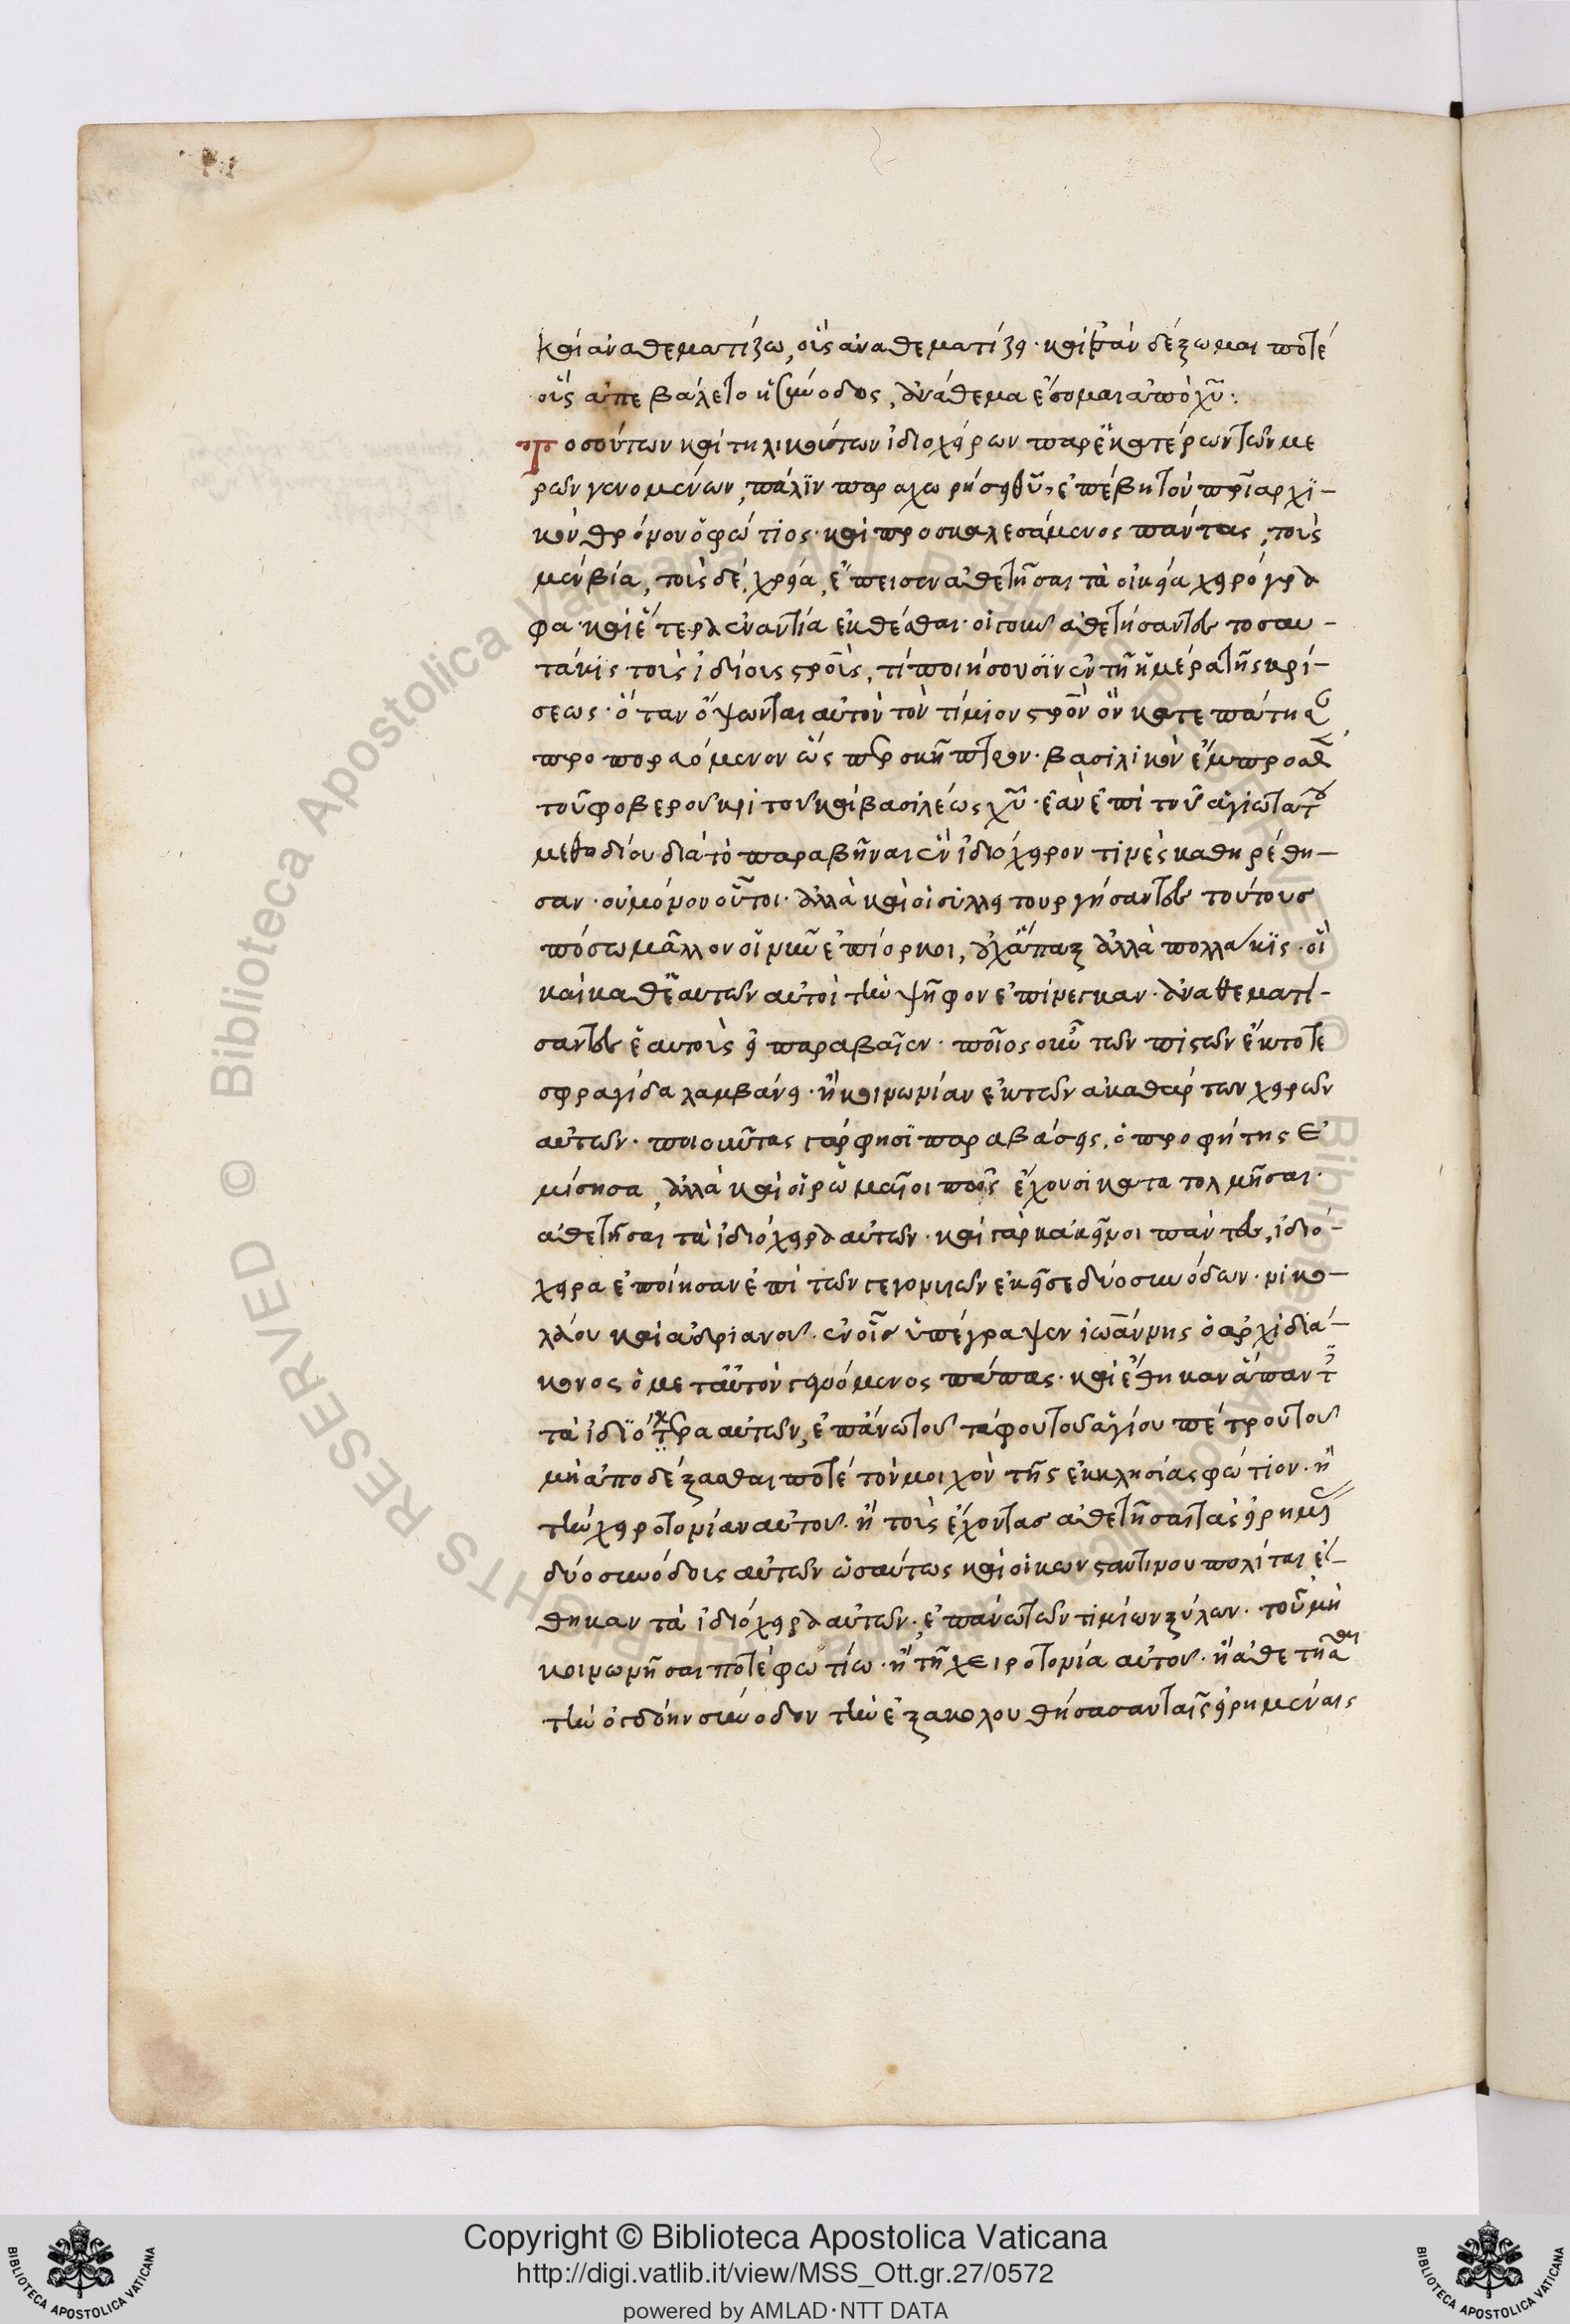 καὶ ἀναθεματίζω, οὓς ἀναθεματίζει· καὶ κἂν δέξωμαι ποτέ
οὓς ἀπεβάλετο ἡ σύνοδος, ἀνάθεμα ἔσομαι ἀπὸ χῦ:
Τοσούτων καὶ τηλικούτων ἰδιοχείρων παρ' ἑκατέρων τῶν με
ρῶν γενομένων, πάλιν παραχωρήσει θῦ, ἐπέβη τὸν πριαρχι-
κὸν θρόνον ὁ φώτιος· καὶ προσκαλεσάμενος πάντας, τοὺς
μὲν βία, τοὺς δὲ, χρεία, ἔπεισεν ἀθετῆσαι τὰ οἰκεῖα χειρόγρα
φα· καὶ ἕτερα ἐναντία ἐκθέσθαι· οἱ γοῦν ἀθετήσαντες τοσαυ-
τάκις τοὺς ἰδίους στροὺς, τί ποιήσουσιν ἐν τῆ ἡμέρα τῆς κρί-
σεως· ὅταν ὄψωνται αὐτὸν τὸν τίμιον στρὸν ὃν κατεπάτησαν
προπορευόμενον ὡς πρ σκῆπτρον· βασιλικὸν ἔμπροσθεν
τοῦ φοβεροῦ κριτοῦ καὶ βασιλέως χῦ· ἐὰν ἐπὶ τοῦ ἁγιωτάτου
μεθοδίου διὰ τὸ παραβῆναι ἓν ἰδιόχειρον τινὲς καθηρέθη-
σαν· οὐ μόνον οὗτοι· ἀλλὰ καὶ οἱ συλλειτουργήσαντες τούτους
πόσω μᾶλλον οἱ νῦν ἐπίορκοι, οὐχ ἅπαξ ἀλλὰ πολλάκις· οἳ
καὶ καθ' ἑαυτῶν αὐτοὶ τὴν ψῆφον ἐπίνεγκαν· ἀναθεματί-
σαντες ἑαυτοὺς εἰ παραβαῖεν· ποῖος οὖν τῶν πιστῶν ἔκτοτε
σφραγίδα λαμβάνει· ἢ κοινωνίαν ἐκ τῶν ἀκαθάρτων χειρῶν
αὐτῶν· ποιοῦντας γάρ φησι παραβάσεις, ὁ προφήτης ἐ
μίσησα, ἀλλὰ καὶ οἱ ῥωμαῖοι πῶς ἔχουσι κατατολμῆσαι·
ἀθετῆσαι τὰ ἰδιόχειρα αὐτῶν· καὶ γὰρ κἀκεῖνοι πάντες, ἰδιό-
χειρα ἐποίησαν ἐπὶ τῶν γεγονυιῶν ἐκεῖσε δύο συνόδων· νικο-
λάου καὶ ἀδριανοῦ· ἐν οἷς ὑπέγραψεν ἰωάννης ὁ ἀρχιδιά-
κονος ὁ μετ' αὐτὸν γενόμενος πάπας· καὶ ἔθηκαν ἅπαντες
τὰ ἰδιόχειρα αὐτῶν, ἐπάνω τοῦ τάφου τοῦ ἁγίου πέτρου τοῦ
μὴ ἀποδέξασθαι ποτέ τὸν μοιχὸν τῆς ἐκκλησίας φώτιον· ἢ
τὴν χειροτονίαν αὐτοῦ· ἢ τοὺς ἔχοντας ἀθετῆσαι τὰς εἰρημένας
δύο συνόδους αὐτῶν ὡσαύτως καὶ οἱ κωνσταντινουπολίται ἔ-
θηκαν τὰ ἰδιόχειρα αὐτῶν, ἐπάνω τῶν τιμίων ξύλων· τοῦ μὴ
κοινωνῆσαι ποτὲ φωτίω· ἢ τῆ χειροτονία αὐτοῦ· ἢ ἀθετῆσαι
τὴν ὀγδόην σύνοδον τὴν ἐξακολουθήσασαν ταῖς εἰρημέναις
Copyright © Biblioteca Apostolica Vaticana
http://digi.vatlib.it/view/MSS_Ott.gr.27/0572
powered by AMLAD·NTT DATA